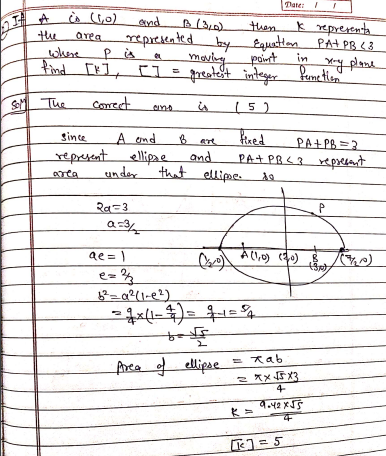 Date: / /
If A is (1,0) and B (3,0) then K represents
the area represented by Equation PA+PB<3
where P is a moving point in x-y plane
find [K], [ ] = greatest integer function
Solⁿ The correct ans is (5)
since A and B are fixed PA+PB=3
represent ellipse and PA+PB<3 represent
area under that ellipse. so
2a=3
a=3/2
P
(1/2,0) A(1,0) (2,0) B (3,0) (7/2,0)
ae=1
e=2/3
b²=a²(1-e²)
= 9/4×(1-4/9) = 9/4-1 = 5/4
b= √5/2
Area of ellipse = πab
= π×√5×3/4
K = 9.42×√5/4
[K] = 5